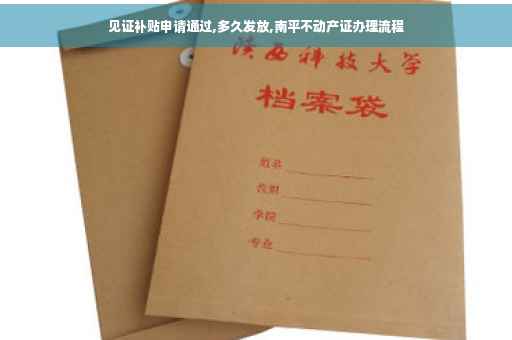 见证补贴申请通过,多久发放,南平不动产证办理流程
陕西科技大学
档案袋
姓名
学院
专业